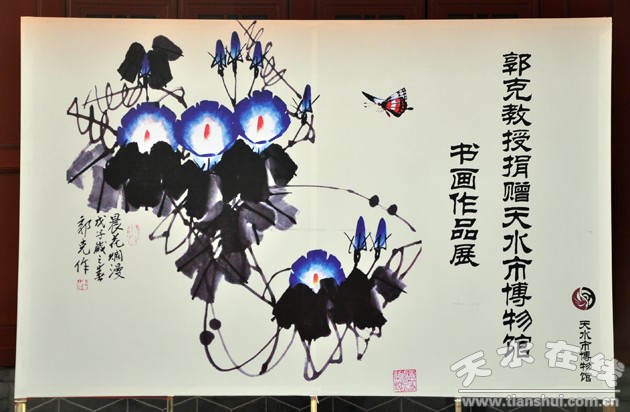 郭克教授捐赠天水市博物馆
书画作品展
晨花烂漫
戊子岁之春
郭克作
天水市博物馆
天水在线
www.tianshui.com.cn